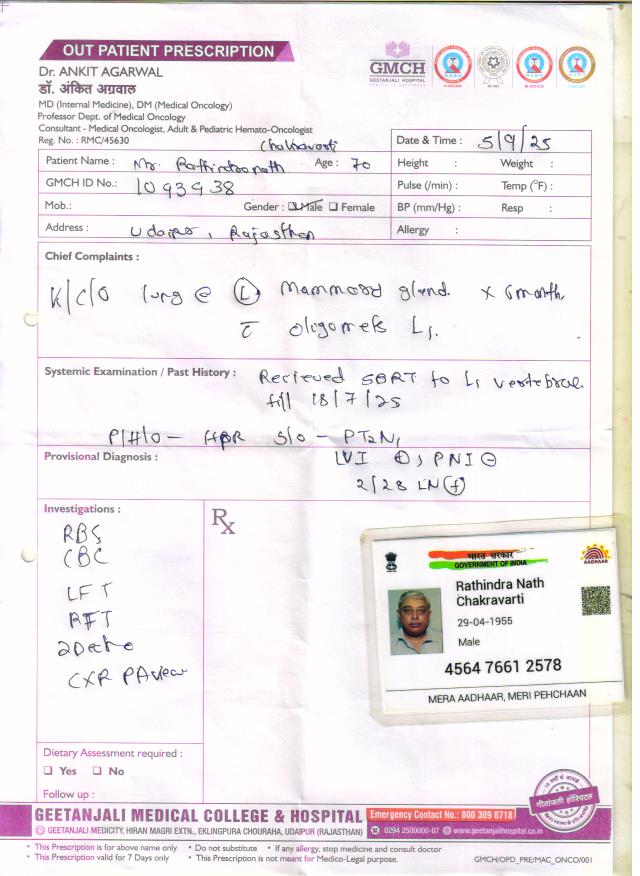 OUT PATIENT PRESCRIPTION
GMCH
GEETANJALI HOSPITAL
Dr. ANKIT AGARWAL
डॉ. अंकित अग्रवाल
MD (Internal Medicine), DM (Medical Oncology)
Professor Dept. of Medical Oncology
Consultant - Medical Oncologist, Adult & Pediatric Hemato-Oncologist
Reg. No. : RMC/45630
Chakravarti
Date & Time : 5/9/25
Patient Name : Mr. Rathindranath Age : 70
Height : Weight :
GMCH ID No.: 1093938
Pulse (/min) : Temp (°F) :
Mob.: Gender : Male Female
BP (mm/Hg) : Resp :
Address : Udaipur, Rajasthan
Allergy :
Chief Complaints :
K/C/O Ⓛ Mammory gland. x 6 month.
c̄ oligomets L1.
Systemic Examination / Past History : Recieved SBRT to L1 vertebrae.
till 18/7/25
P/H/O - HPR S/O - PT2N1
Provisional Diagnosis : LVI ⊕, PNI ⊖
2/28 LN ⊕
Investigations :
Rx
RBS
CBC
LFT
RFT
2Decho
CXR PAview
भारत सरकार
GOVERNMENT OF INDIA
AADHAAR
Rathindra Nath
Chakravarti
29-04-1955
Male
4564 7661 2578
MERA AADHAAR, MERI PEHCHAAN
Dietary Assessment required :
Yes No
Follow up :
गीतांजली हॉस्पिटल
GEETANJALI MEDICAL COLLEGE & HOSPITAL Emergency Contact No.: 800 309 8718
GEETANJALI MEDICITY, HIRAN MAGRI EXTN., EKLINGPURA CHOURAHA, UDAIPUR (RAJASTHAN) 0294 2500000-07 www.geetanjalihospital.co.in
• This Prescription is for above name only • Do not substitute • If any allergy, stop medicine and consult doctor
• This Prescription valid for 7 Days only • This Prescription is not meant for Medico-Legal purpose.
GMCH/OPD_PRE/MAC_ONCO/001